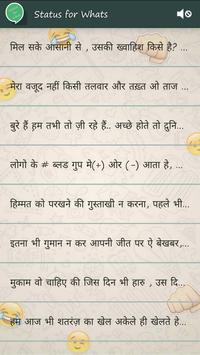 Status for Whats
मिल सके आसानी से , उसकी ख्वाहिश किसे है? ...
मेरा वजूद नहीं किसी तलवार और तख़्त ओ ताज ...
बुरे हैं हम तभी तो ज़ी रहे हैं.. अच्छे होते तो दुनि...
लोगो के # ब्लड गुप मे(+) ओर (-) आता हे, ...
हिम्मत को परखने की गुस्ताखी न करना, पहले भी...
इतना भी गुमान न कर आपनी जीत पर ऐ बेखबर,...
मुकाम वो चाहिए की जिस दिन भी हारु , उस दि...
हम आज भी शतरंज़ का खेल अकेले ही खेलते हे...